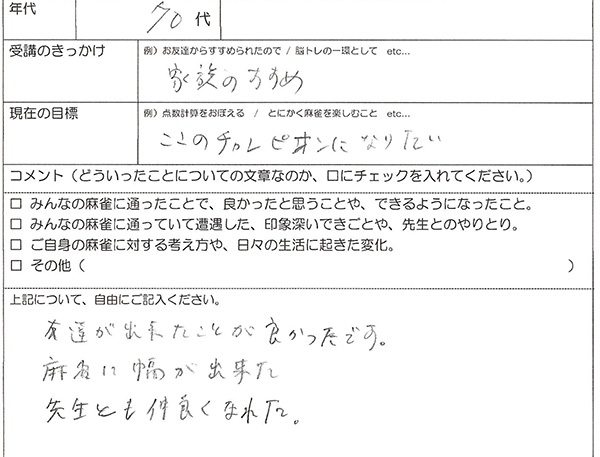 年代 70代
受講のきっかけ 例）お友達からすすめられたので / 脳トレの一環として etc...
家族のすすめ
現在の目標 例）点数計算をおぼえる / とにかく麻雀を楽しむこと etc...
ここのチャレピオンになりたい
コメント（どういったことについての文章なのか、口にチェックを入れてください。）
□ みんなの麻雀に通ったことで、良かったと思うことや、できるようになったこと。
□ みんなの麻雀に通っていて遭遇した、印象深いできごとや、先生とのやりとり。
□ ご自身の麻雀に対する考え方や、日々の生活に起きた変化。
□ その他（ ）
上記について、自由にご記入ください。
友達が出来たことが良かったです。
麻雀に幅が出来た
先生とも仲良くなれた。